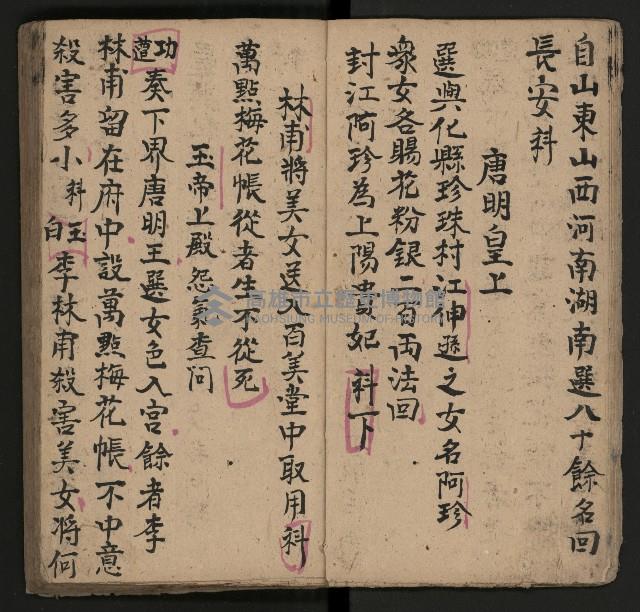 自山東山西河南湖南選八十餘名回
長安科
唐明皇上
選興化縣珍珠村江仲遜之女名阿珍
眾女各賜花粉銀二百両法回
封江阿珍為上陽貴妃科下
林甫將美女送入百美堂中取用科
萬點梅花帳從者生不從死
玉帝上殿怨氣查问
功遭奏下界唐明王選女色入宮餘者李
林甫留在府中設萬點梅花帳不中意
殺害多小科玉白李林甫殺害美女將何
高雄市立歷史博物館
KAOHSIUNG MUSEUM OF HISTORY